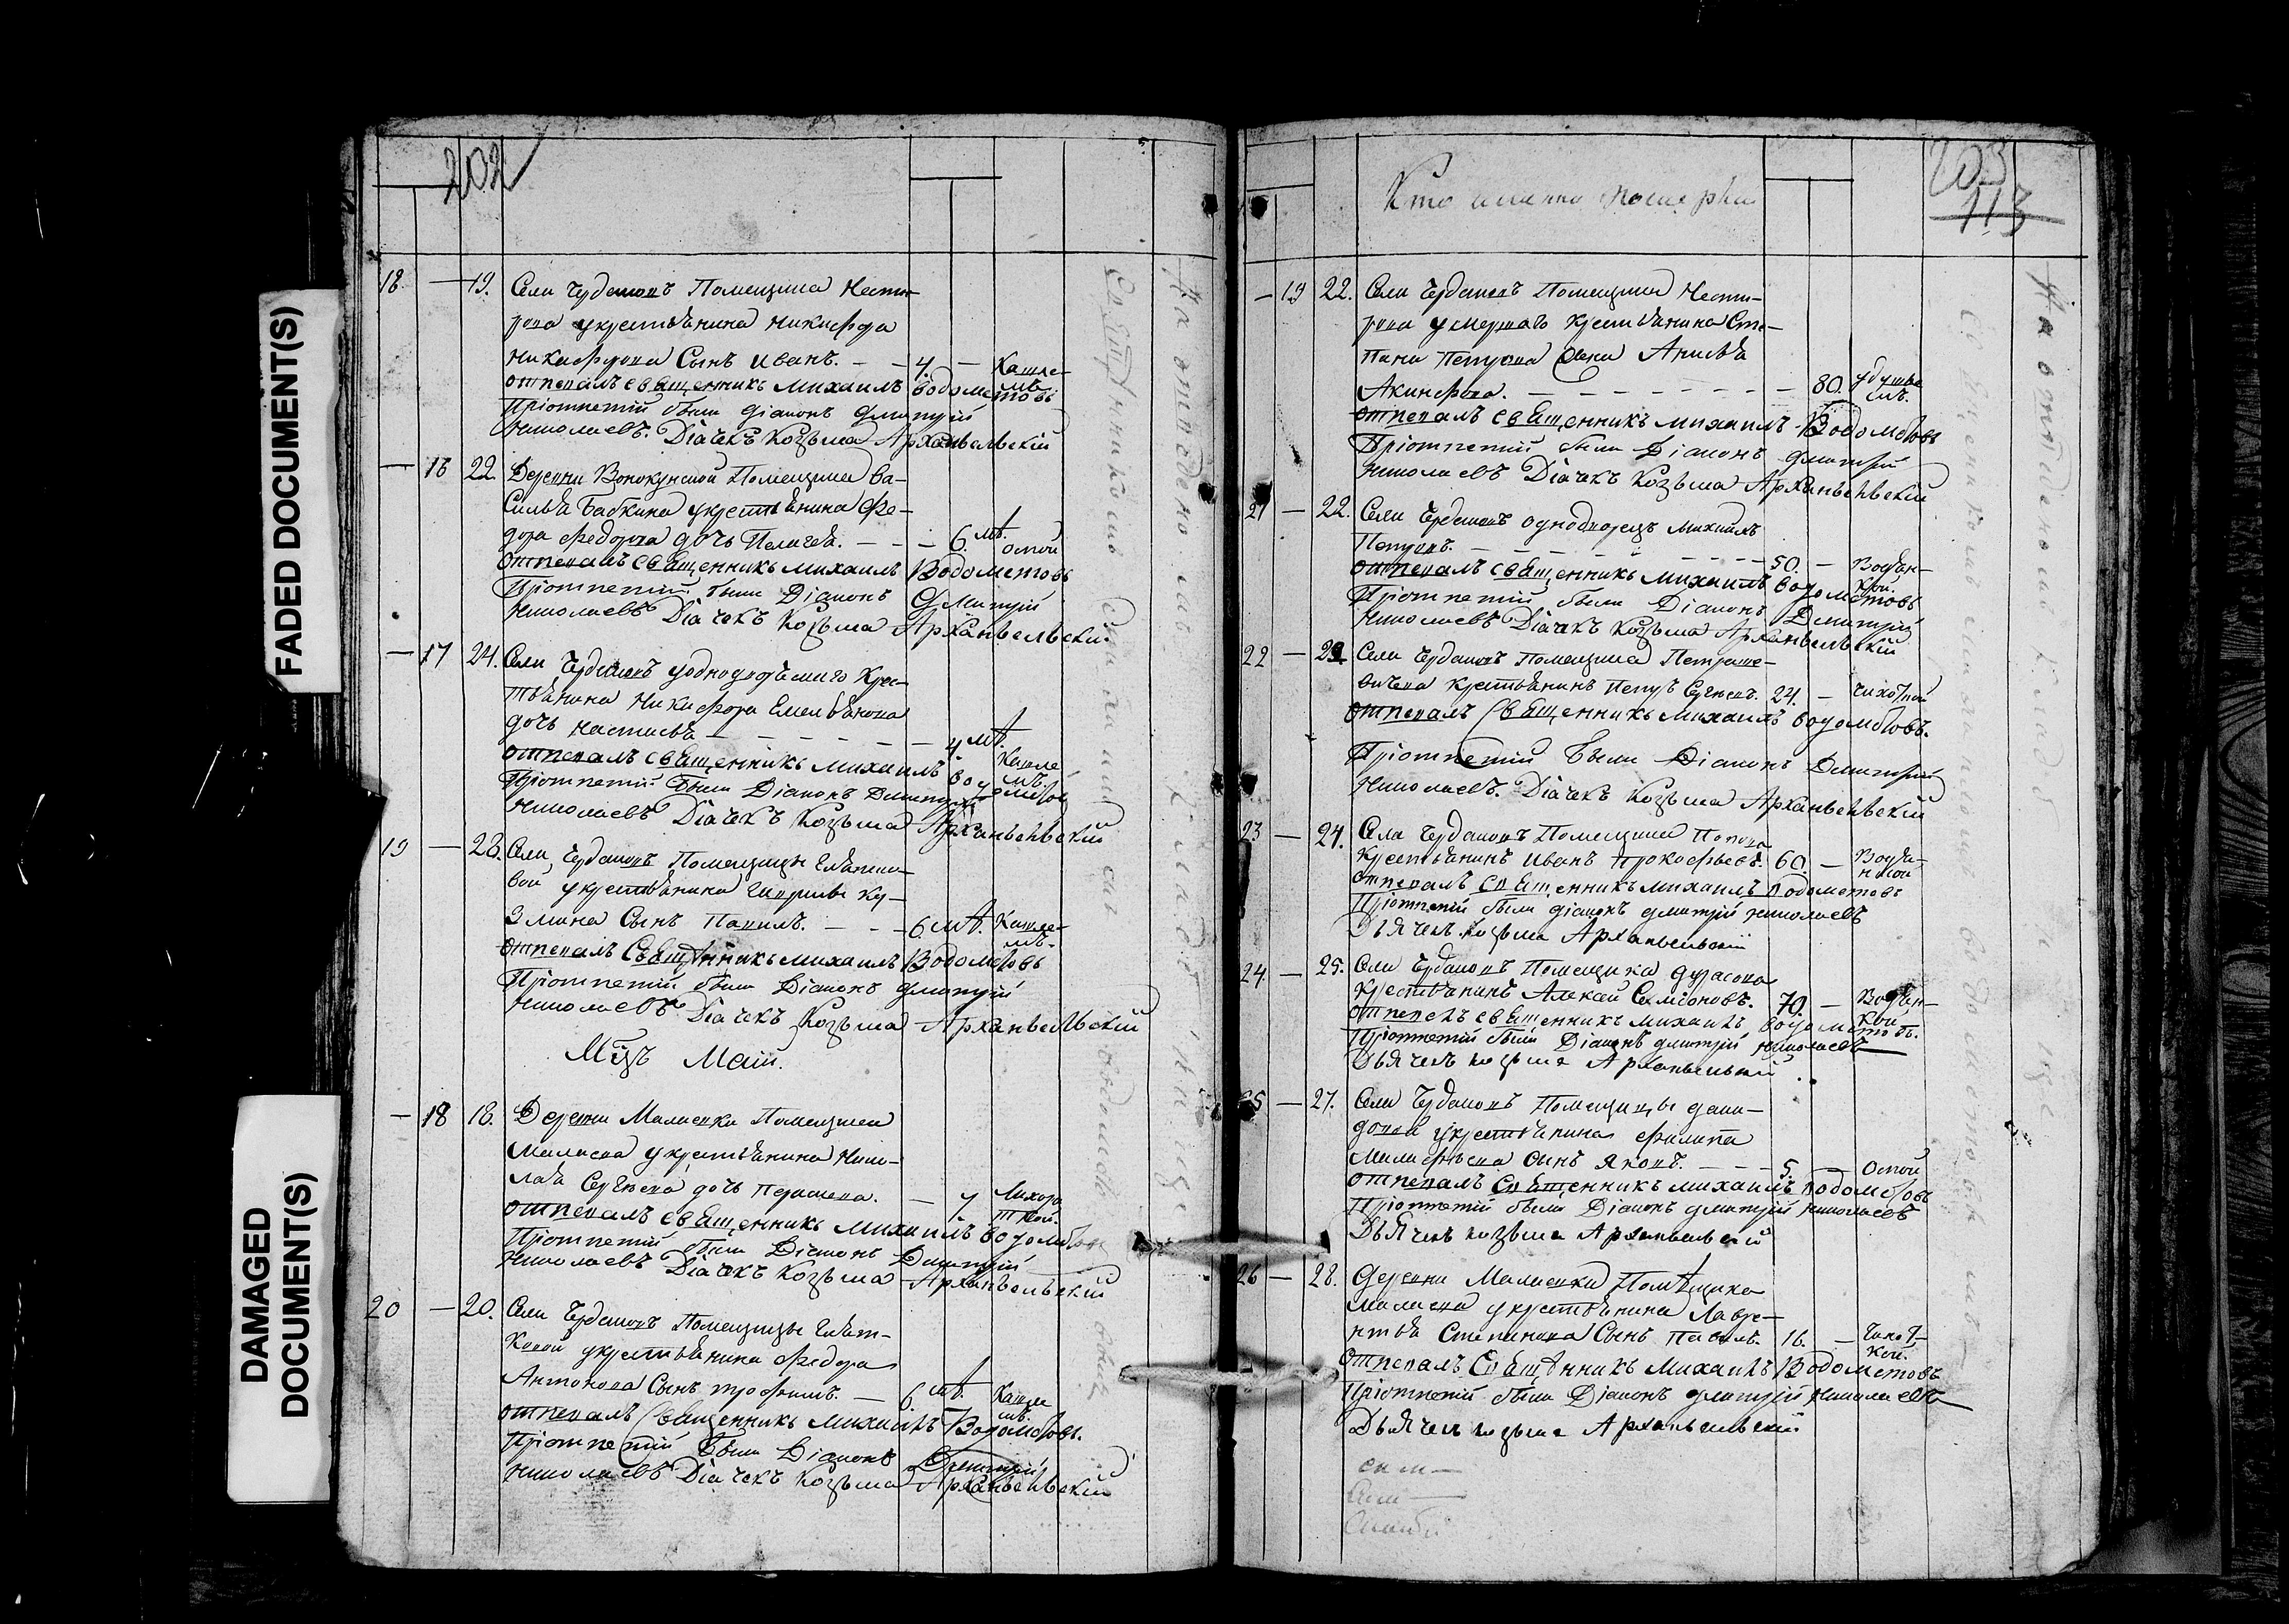 FADED DOCUMENT(S)
DAMAGED
DOCUMENT(S)
202
18. — 19. Села Чердаковъ Помещика Несте-
рова у крестьянина Никифора
Никифорова Сынъ Иванъ. — 4. — Кашле-
мъ
отпевалъ священникъ Михаилъ Водометовъ
Приотпетiи были Дiаконъ Дмитрiй
Николаевъ. Дiачекъ Козьма Архангельскiй
— 16 22. Деревни Помещика Ва-
силья Бабкина у крестьянина Фе-
дора Федорова дочь Пелагея. — — — 6. мѣ. оспой
отпевалъ священникъ Михаилъ Водометовъ
Приотпетiи были Дiаконъ Дмитрiй
Николаевъ Дiачекъ Козьма Архангельскiй
— 17 24. Села Чердаковъ у Крес-
тьянина Никифора Емельянова
дочь Настасья — — — — 4 мѣ. Кашле
мъ.
отпевалъ священникъ Михаилъ Водометов
Приотпетiи были Дiаконъ Дмитрiй
Николаевъ Дiачекъ Козьма Архангельскiй
19 — 28. Села Чердаковъ Помещицы
вой у крестьянина Гаврилы Ку-
змина Сынъ Павилъ. — — 6. мѣ. Кашле-
мъ.
отпевалъ Священникъ Михаилъ Водометовъ
Приотпетiи были Дiаконъ Дмитрiй
Николаевъ Дiачекъ Козьма Архангельскiй
Мцъ Маiй.
— 18 18. Деревни Малаевки Помещика
Малаева у крестьянина Нико-
лая Сергѣева дочь — 7 Лихора
ткой.
отпевалъ священникъ Михаилъ Водометов
Приотпетiи были Дiаконъ Дмитрiй
Николаевъ Дiачекъ Козьма Архангельскiй
20 — 20. Села Чердаковъ Помещицы
ковой у крестьянина Федора
Антонова Сынъ Трофимъ. — 6. мѣ. Кашле
мъ.
отпевалъ священникъ Михаилъ Водометовъ.
Приотпетiи были Дiаконъ Дмитрiй
Николаевъ Дiачекъ Козьма Архангельскiй
203
113
Кто именно померъ
— 19 22. Села Чердаковъ Помещика Несте-
рова умершаго крестьянина Сте-
пана Петрова жена Анисья
Акинфова. — — — — — — 80. удушье
мъ.
отпевалъ священникъ Михаилъ Водометовъ
Приотпетiи были Дiаконъ Дмитрiй
Николаевъ Дiачекъ Козьма Архангельскiй
21 — 22. Села Чердаковъ однодворецъ Михаилъ
Петровъ. — — — — — — 50. — Водян-
кой.
отпевалъ священникъ Михаилъ Водометовъ
Приотпетiи были Дiаконъ Дмитрiй
Николаевъ Дiачекъ Козьма Архангельскiй
22 — 23 Села Чердаковъ Помещика Петраше-
вичева крестьянинъ Петръ Сергѣевъ. 24. — чихоткой
отпевалъ священникъ Михаилъ Водометовъ.
Приотпетiи были Дiаконъ Дмитрiй
Николаевъ. Дiачекъ Козьма Архангельскiй
23 — 24. Села Чердаковъ Помещика Попова
крестьянинъ Иванъ Прокофьевъ. 60. — Водя-
нкой
отпевалъ священникъ Михаилъ Водометовъ
Приотпетiи были дiаконъ Дмитрiй Николаевъ
Дьячекъ Козьма Архангельскiй
24. — 25. Села Чердаковъ Помещика Дурасова
крестьянинъ Алексей Семiоновъ. 70. — Водян-
кой
отпевалъ священникъ Михаилъ Водометовъ.
Приотпетiи были Дiаконъ Дмитрiй Николаевъ
Дьячекъ Козьма Архангельскiй
25 — 27. Села Чердаковъ Помещицы Давы-
довой у крестьянина Филипа
сынъ Яковъ. — — — 5. — Оспой
отпевалъ священникъ Михаилъ Водометовъ
Приотпетiи были Дiаконъ Дмитрiй Николаевъ
Дьячекъ Козьма Архангельскiй
26 — 28. Деревни Малаевки Помѣщика
Малаева у крестьянина Лавре-
нтья Степанова Сынъ Павилъ. 16. — Чихот-
кой.
отпевалъ священникъ Михаилъ Водометовъ
Приотпетiи были Дiаконъ Дмитрiй Николаевъ
Дьячекъ Козьма Архангельскiй